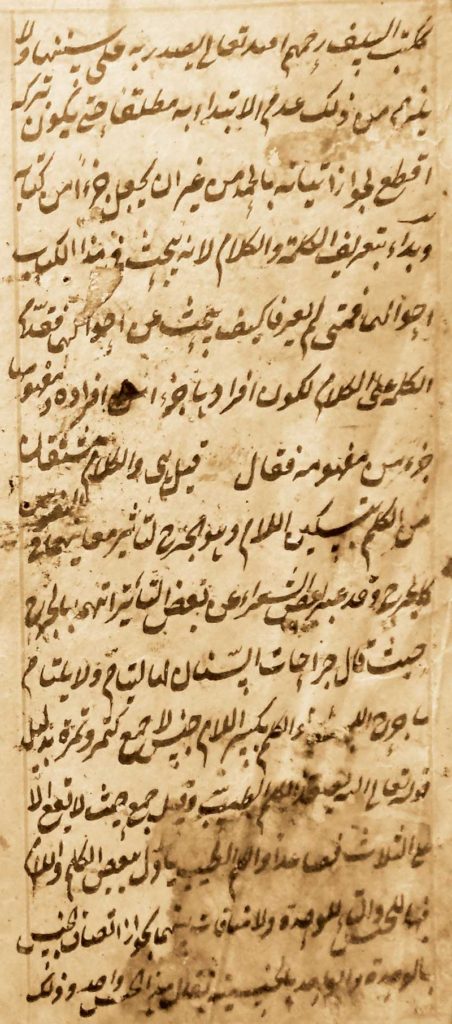 كتب السلف رحمهم الله تعالى يصدر به على سننها ولا
يلزم من ذلك عدم الابتداء به مطلقا حتى يكون تركه
اقطع لجواز اتيانه بالحمد من غير ان يجعل جزءا من كتابه
وبداء بتعريف الكلمة والكلام لانه يبحث في هذا الكتاب
احوالهما فمتى لم يعرفا كيف يبحث عن احوالهما فقدم
الكلمة على الكلام لكون افرادها جزءا من افراده ومفهومها
جزء من مفهومه فقال قيل هي والكلام مشتقان
من الكلم بتسكين اللام وهو الجرح لتاثير معانيهما في النفوس
كالجرح وقد عبر بعض الشعراء عن بعض التأثيراتهما بالجرح
حيث قال جراحات السنان لها التيام ولا يلتام
ما جرح الكلم بكسر اللام جنس لا جمع كتمر وتمرة بدليل
قوله تعالى اليه يصعد الكلم الطيب وقيل جمع حيث لا يقع الا
على الثلاث فصاعدا والكلم الطيب ببعض الكلم واللام
فيها للجنس والتاء للوحدة ولا منافات بينهما لجواز اتصاف الجنس
بالوحدة والواحد بالجنسية يقال هذا الجنس واحد وذلك